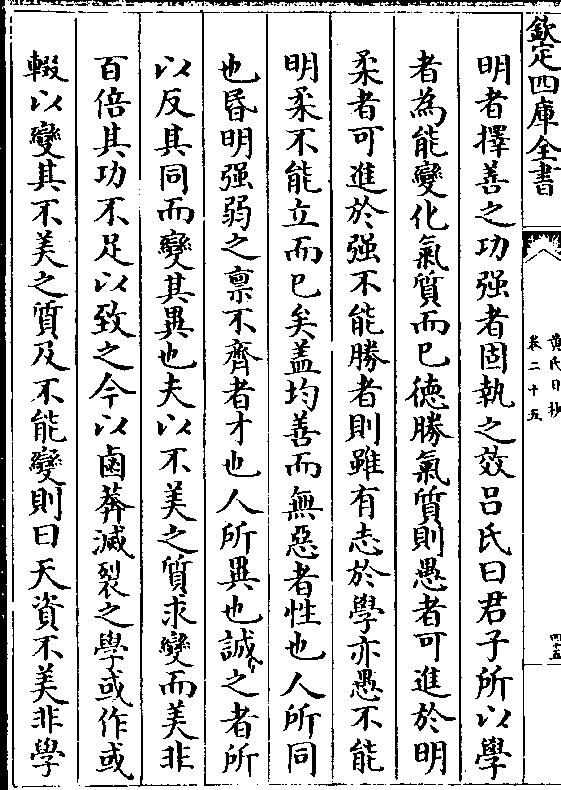 欽定四庫全書
黄氏日抄
卷二十五
四十五
明者擇善之功强者固執之效吕氏曰君子所以學
者為能變化氣質而已德勝氣質則愚者可進於明
柔者可進於强不能勝者則雖有志於學亦愚不能
明柔不能立而已矣盖均善而無惡者性也人所同
也昬明强弱之禀不齊者才也人所異也誠之者所
以反其同而變其異也夫以不美之質求變而美非
百倍其功不足以致之今以鹵莽滅裂之學或作或
輟以變其不美之質及不能變則曰天資不美非學